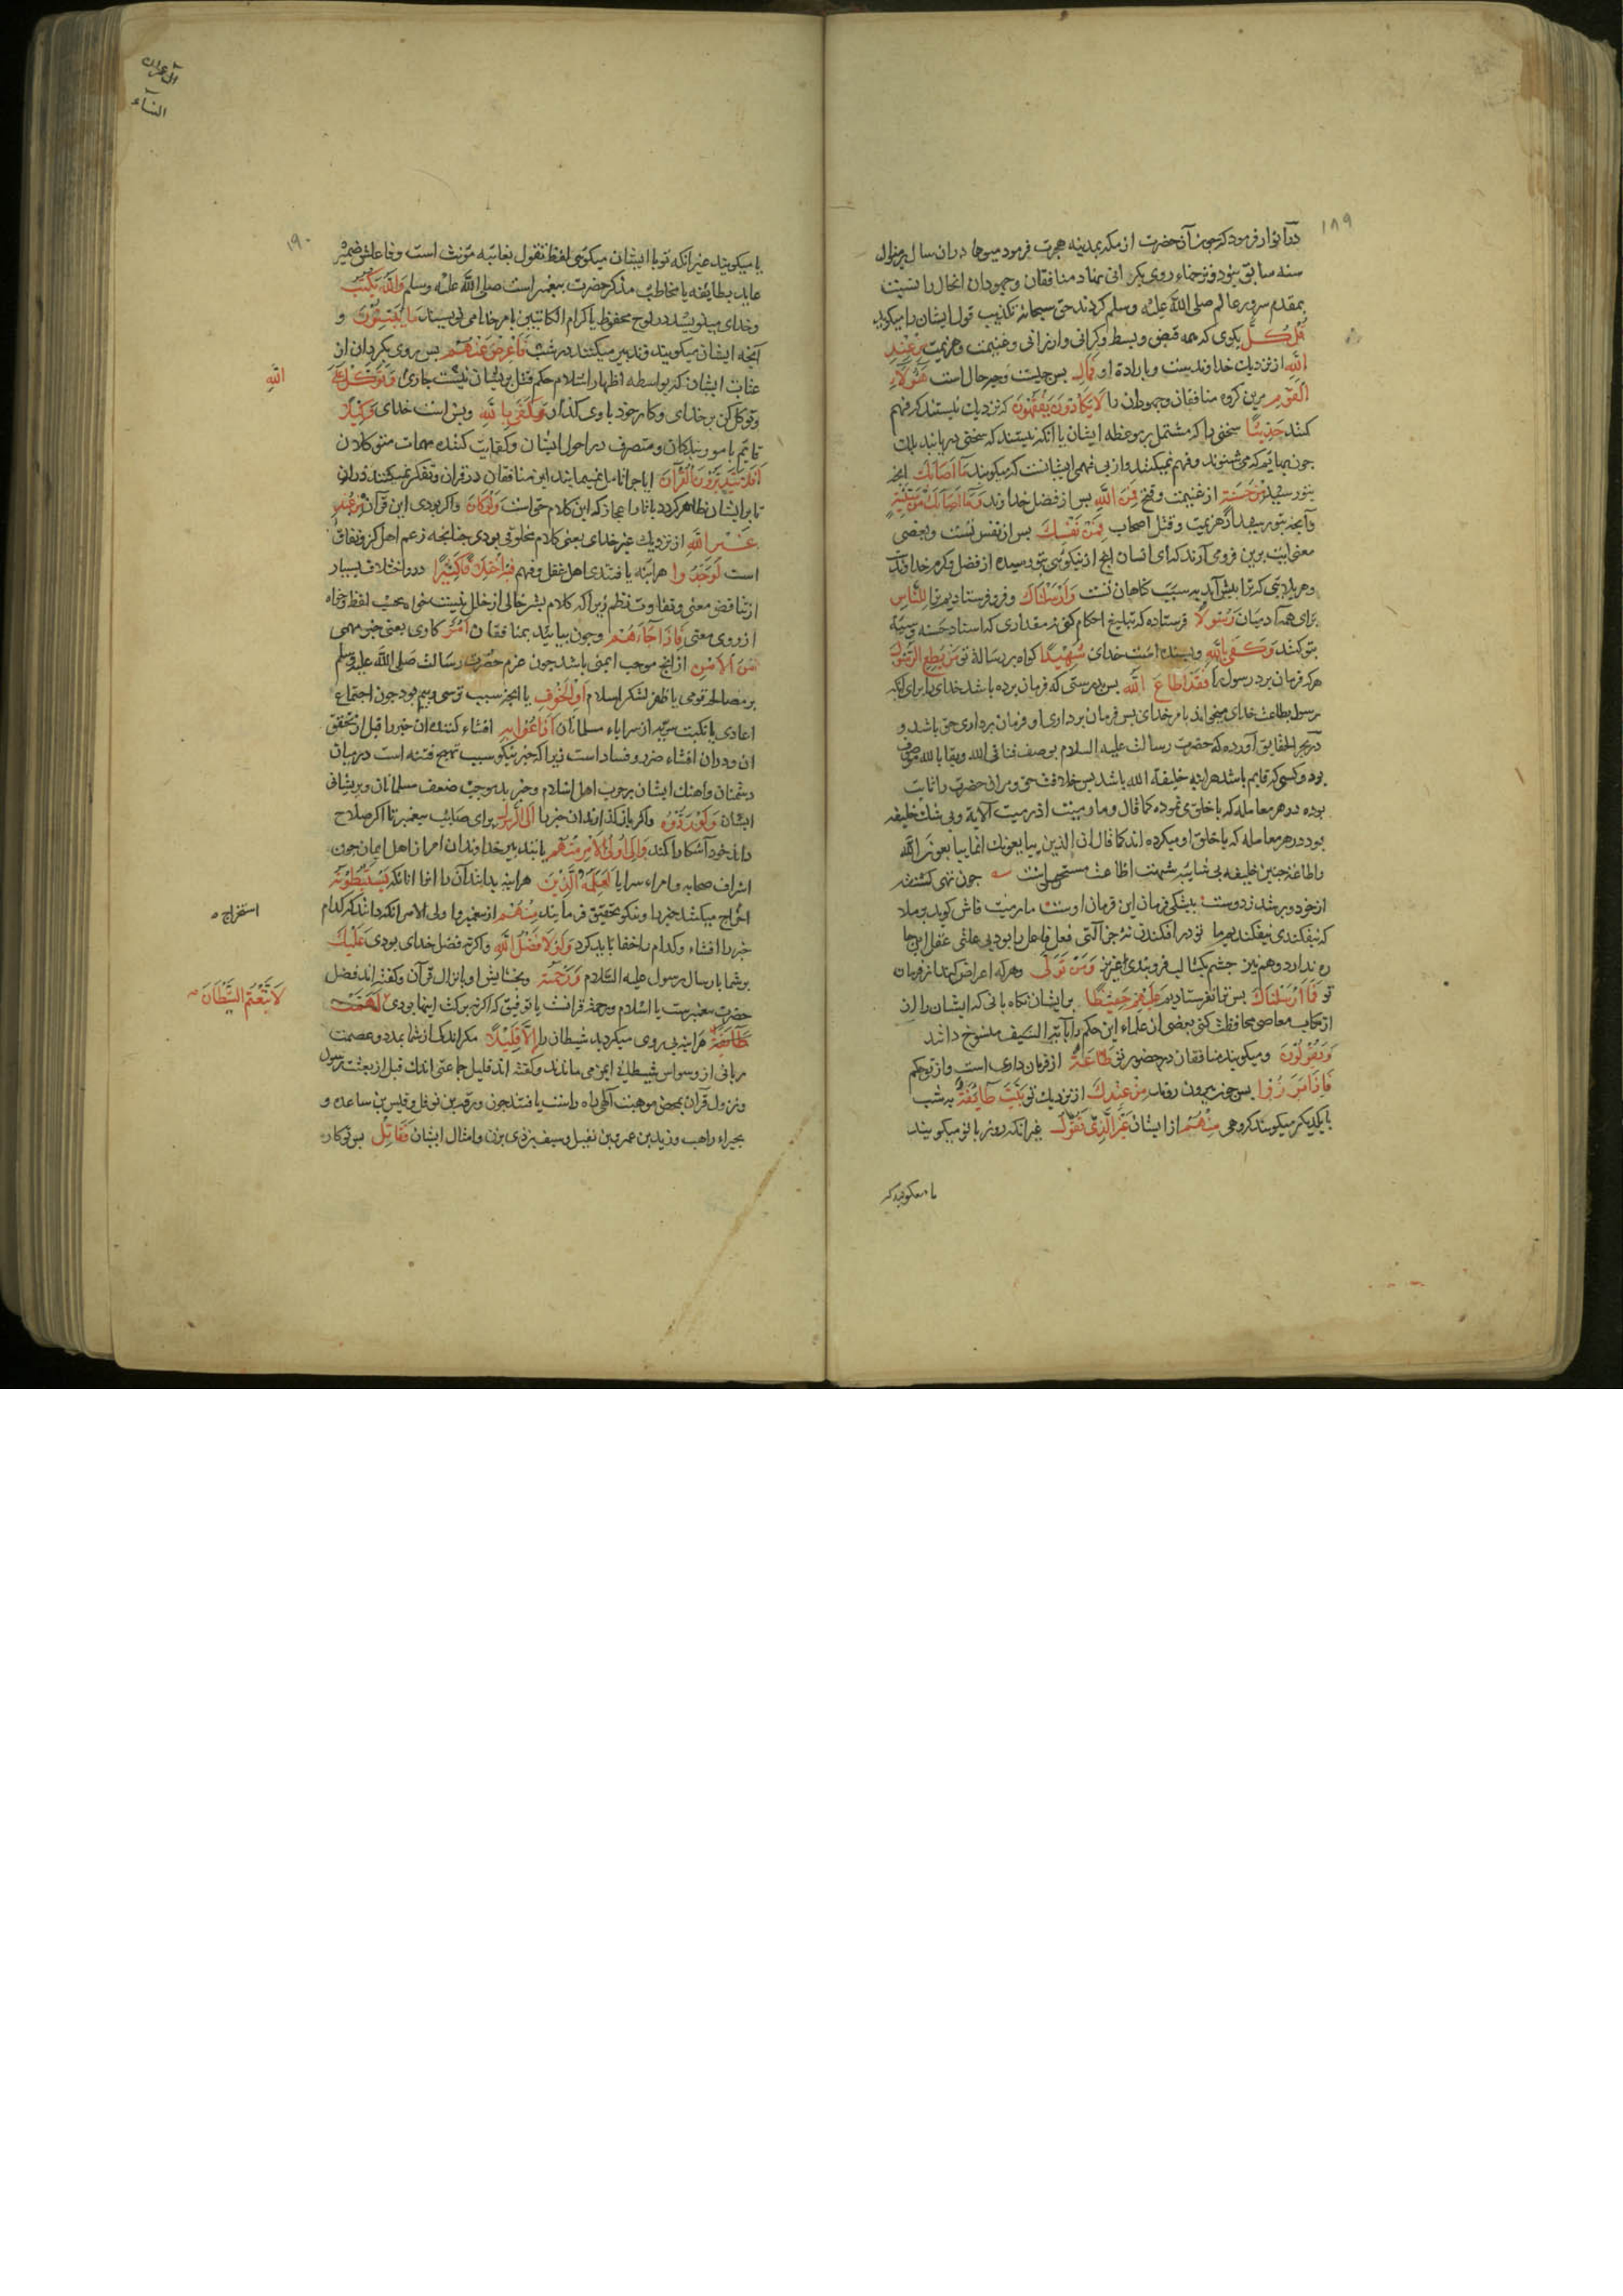 ۱۸۹
در انوار فرمود که چون آن حضرت از مکه بمدینه هجرت فرمود میوها در ان سال بر منوال
سنه سابق نبود و نرخها روی بگرانی نهاد منافقان و جهودان انحال را نسبت
بمقدم سرور عالم صلی الله علیه وسلم کردند حق سبحانه تکذیب قول ایشان را میگوید
قُلْ كُلٌّ بکوی که همه قبض و بسط و کرانی و ارزانی و غنیمت و هزیمت مِنْ عِنْدِ
اللهِ از نزدیك خداوندست و بارادة او فَمَالِ بس چیست و چه حال است هٰؤُلَاءِ
الْقَوْمِ مرین کروه منافقان و جهودان را لَا يَكَادُونَ يَفْقَهُونَ که نزدیك نیستند که فهم
کنند حَدِيثًا سخنی را که مشتمل بر موعظه ایشان یا انکه نیستند که سخنی دریابند بلك
چون بهایم که می شنوند و فهم نمیکنند و از بی فهمی ایشانست که میکویند مَا أَصَابَكَ انچه
بتو رسید مِنْ حَسَنَةٍ از غنیمت و فتح فَمِنَ اللهِ بس از فضل خداوند وَمَا أَصَابَكَ مِنْ سَيِّئَةٍ
وآنچه بتو رسید از هزیمت و قتل اصحاب فَمِنْ نَفْسِكَ بس از نفس تست و بعضی
معنی ایت برین فرومی آرند که ای انسان انچ از نیکوئی بتو رسیده از فضل و کرم خداوند
وهر بدی که ترا بیش آید به سبب کناهان تست وَأَرْسَلْنَاكَ و فرو فرستادیم ترا لِلنَّاسِ
برای همه آدمیان رَسُولًا فرستاده که تبلیغ احکام کنی نه مقداری که اسناد حسنه و سیئه
بتو کنند وَكَفَى بِاللهِ و بسنده است خدای شَهِيدًا کواه بر رسالة تو مَنْ يُطِعِ الرَّسُولَ
هر که فرمان برد رسول را فَقَدْ أَطَاعَ اللهَ بس بدرستی که فرمان برده باشد خدای را برای انکه
رسول بطاعت خدای میخواند بامر خدای بس فرمان برداری او فرمان برداری حق باشد و
در بحر الحقایق آورده که حضرت رسالت علیه السلام بوصف فنا فی الله و بقا بالله موصوف
بود و کسی که قایم باشد هراینه خلیفة الله باشد بس خلافت حق مر ان حضرت را ثابت
بوده در هر معامله که با خلق می نموده کما قال وما رمیت اذ رمیت آلایة و بی شك خلیفه
بود در هر معامله که با خلق او میکرده اند کما قال ان الذین یبایعونك انما یبایعون الله
و اطاعة چنین خلیفه بی شایبه شبهت اطاعت مستخلف است چون تهی کشته
از خود و بر شد ز دوست بیشکی فرمان این فرمان اوست ما رمیت فاش کوید بر ملا
که نیفکندی نیفکند بهر ما تو در افکندن نۀ جز آلتی فعل فاعل را بود بی علتی عقل اینجا
ره ندارد و هم نیز چشم بکشا لب فروبند ای عزیز وَمَنْ تَوَلَّى و هر که اعراض کند از فرمان
تو فَمَا أَرْسَلْنَاكَ بس ترا نفرستادیم عَلَيْهِمْ حَفِيظًا بر ایشان نکاه بانی که ایشان را از
ارتکاب معاصی محافظت کنی بعضی از علماء این حکم را بآیة السیف منسوخ داشد
وَيَقُولُونَ و میکویند منافقان در حضور تو طَاعَةٌ از فرمان داری است و از تو حکم
فَإِذَا بَرَزُوا بس چون بیرون روند مِنْ عِنْدِكَ از نزدیك تو بَيَّتَ طَائِفَةٌ به شب
با یکدیکر میکویند کروهی مِنْهُمْ از ایشان غَيْرَ الَّذِي تَقُولُ غیر انکه روز با تو میکویند
یا میکویند که
آل عمران
النساء
۱۹۰
یا میکویند غیر انکه تو با ایشان میکوئی لفظ تقول بغایبه مؤنث است و فاعلش ضمیر
عاید بطایفه یا مخاطب مذکر حضرت بیغمبر است صلی الله علیه وسلم وَاللهُ يَكْتُبُ
و خدای مینویسد در لوح محفوظ یا کرام الکاتبین بامر خدا می نویسند مَا يُبَيِّتُونَ و
آنچه ایشان میکویند و تدبیر میکنند در شب فَأَعْرِضْ عَنْهُمْ بس روی بکردان از
عتاب ایشان که بواسطه اظهار اسلام حکم قتل بر یشان نیست جاری وَتَوَكَّلْ عَلَى
اللهِ
و توکل کن بر خدای و کار خود با وی کذار وَكَفَى بِاللهِ و بس است خدای وَكِيلًا
قایم بامور بندکان و متصرف در احوال ایشان و کفایت کننده مهمات متوکلان
أَفَلَا يَتَدَبَّرُونَ الْقُرْآنَ ایا چرا تامل نمینمایند این منافقان در قران و تفکر نمیکنند در ان
تا بر ایشان ظاهر کردد با تار اعجاز که این کلام حق است وَلَوْ كَانَ و اکر بودی این قرآن مِنْ عِنْدِ
غَيْرِ اللهِ از نزدیك غیر خدای یعنی کلام مخلوقی بودی چنانچه زعم اهل کفر و نفاق
است لَوَجَدُوا هراینه یافتندی اهل عقل و فهم فِيهِ اخْتِلَافًا كَثِيرًا درو اختلاف بسیار
از تناقض معنی و تفاوت نظم زیرا که کلام بشر خالی از خلل نیست خواه بحسب لفظ و خواه
از روی معنی وَإِذَا جَاءَهُمْ و چون بیاید بمنافقان أَمْرٌ کاری یعنی خبر مهمی
مِنَ الْأَمْنِ از انچ موجب ایمنی باشد چون عزم حضرت رسالت صلی الله علیه وسلم
بر مصالحة قومی یا ظفر لشکر اسلام أَوِ الْخَوْفِ یا انچه سبب ترسی و بیم بود چون اجتماع
اعادی یا نکبت سریه از سرایاء مسلمانان أَذَاعُوا بِهِ افشاء کنند ان خبر را قبل از تحقق
ان و در ان افشاء ضرر و فساد است زیرا که خبر نیکو سبب تهییج فتنه است در میان
دشمنان و اهنك ایشان بر حرب اهل اسلام و خبر بد موجب ضعف مسلمانان و بریشانی
ایشان وَلَوْ رَدُّوهُ و اکر باز کذارند ان خبر را إِلَى الرَّسُولِ برای صایب بیغمبر تا اکر صلاح
داند خود آشکارا کند وَإِلَى أُولِي الْأَمْرِ مِنْهُمْ یا بتدبیر خداوندان امر از اهل ایمان چون
اشراف صحابه و امراء سرایا لَعَلِمَهُ الَّذِينَ هراینه بدانند آن را انها انانکه يَسْتَنْبِطُونَهُ
استخراج
اخراج میکنند خبرها و نیکو تحقیق فرمایند مِنْهُمْ از بیغمبر و اولی الامر انکه دانند که کدام
خبر را افشاء و کدام را اخفا باید کرد وَلَوْلَا فَضْلُ اللهِ و اکر نه فضل خدای بودی عَلَيْكُمْ
بر شما بارسال رسول علیه السلام وَرَحْمَتُهُ و بخشایش او بانزال قرآن و کفته اند فضل
حضرت بیغمبرست یا اسلام و رحمة قرانست یا توفیق که اکر نه برکت اینها بودی
لَاتَّبَعْتُمُ الشَّيْطَانَ
هراینه بی روی میکردید شیطان را إِلَّا قَلِيلًا مکر اندکی از شما بمدد و عصمت
ربانی از وسواس شیطان ایمن می ماندند و کفته اند قلیل جماعتی اندك قبل از بعثت رسول
و نزول قرآن بمحض موهبت الهی راه راست یافتند چون ورقه بن نوفل و قیس بن ساعده و
بحیراء راهب و زید بن عمرو بن نفیل و سیف بن ذی یزن و امثال ایشان فَقَاتِلْ بس تو کارزار